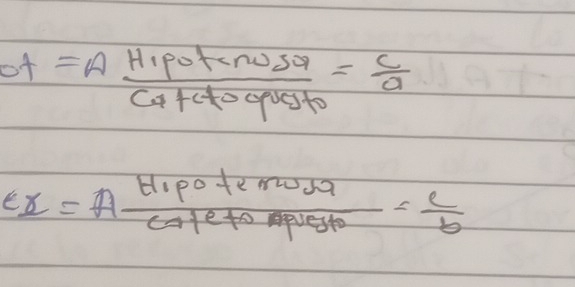 ot = A Hipotenusa / Cateto opuesto = c/a
ex = A Hipotenusa / cateto opuesto = c/b